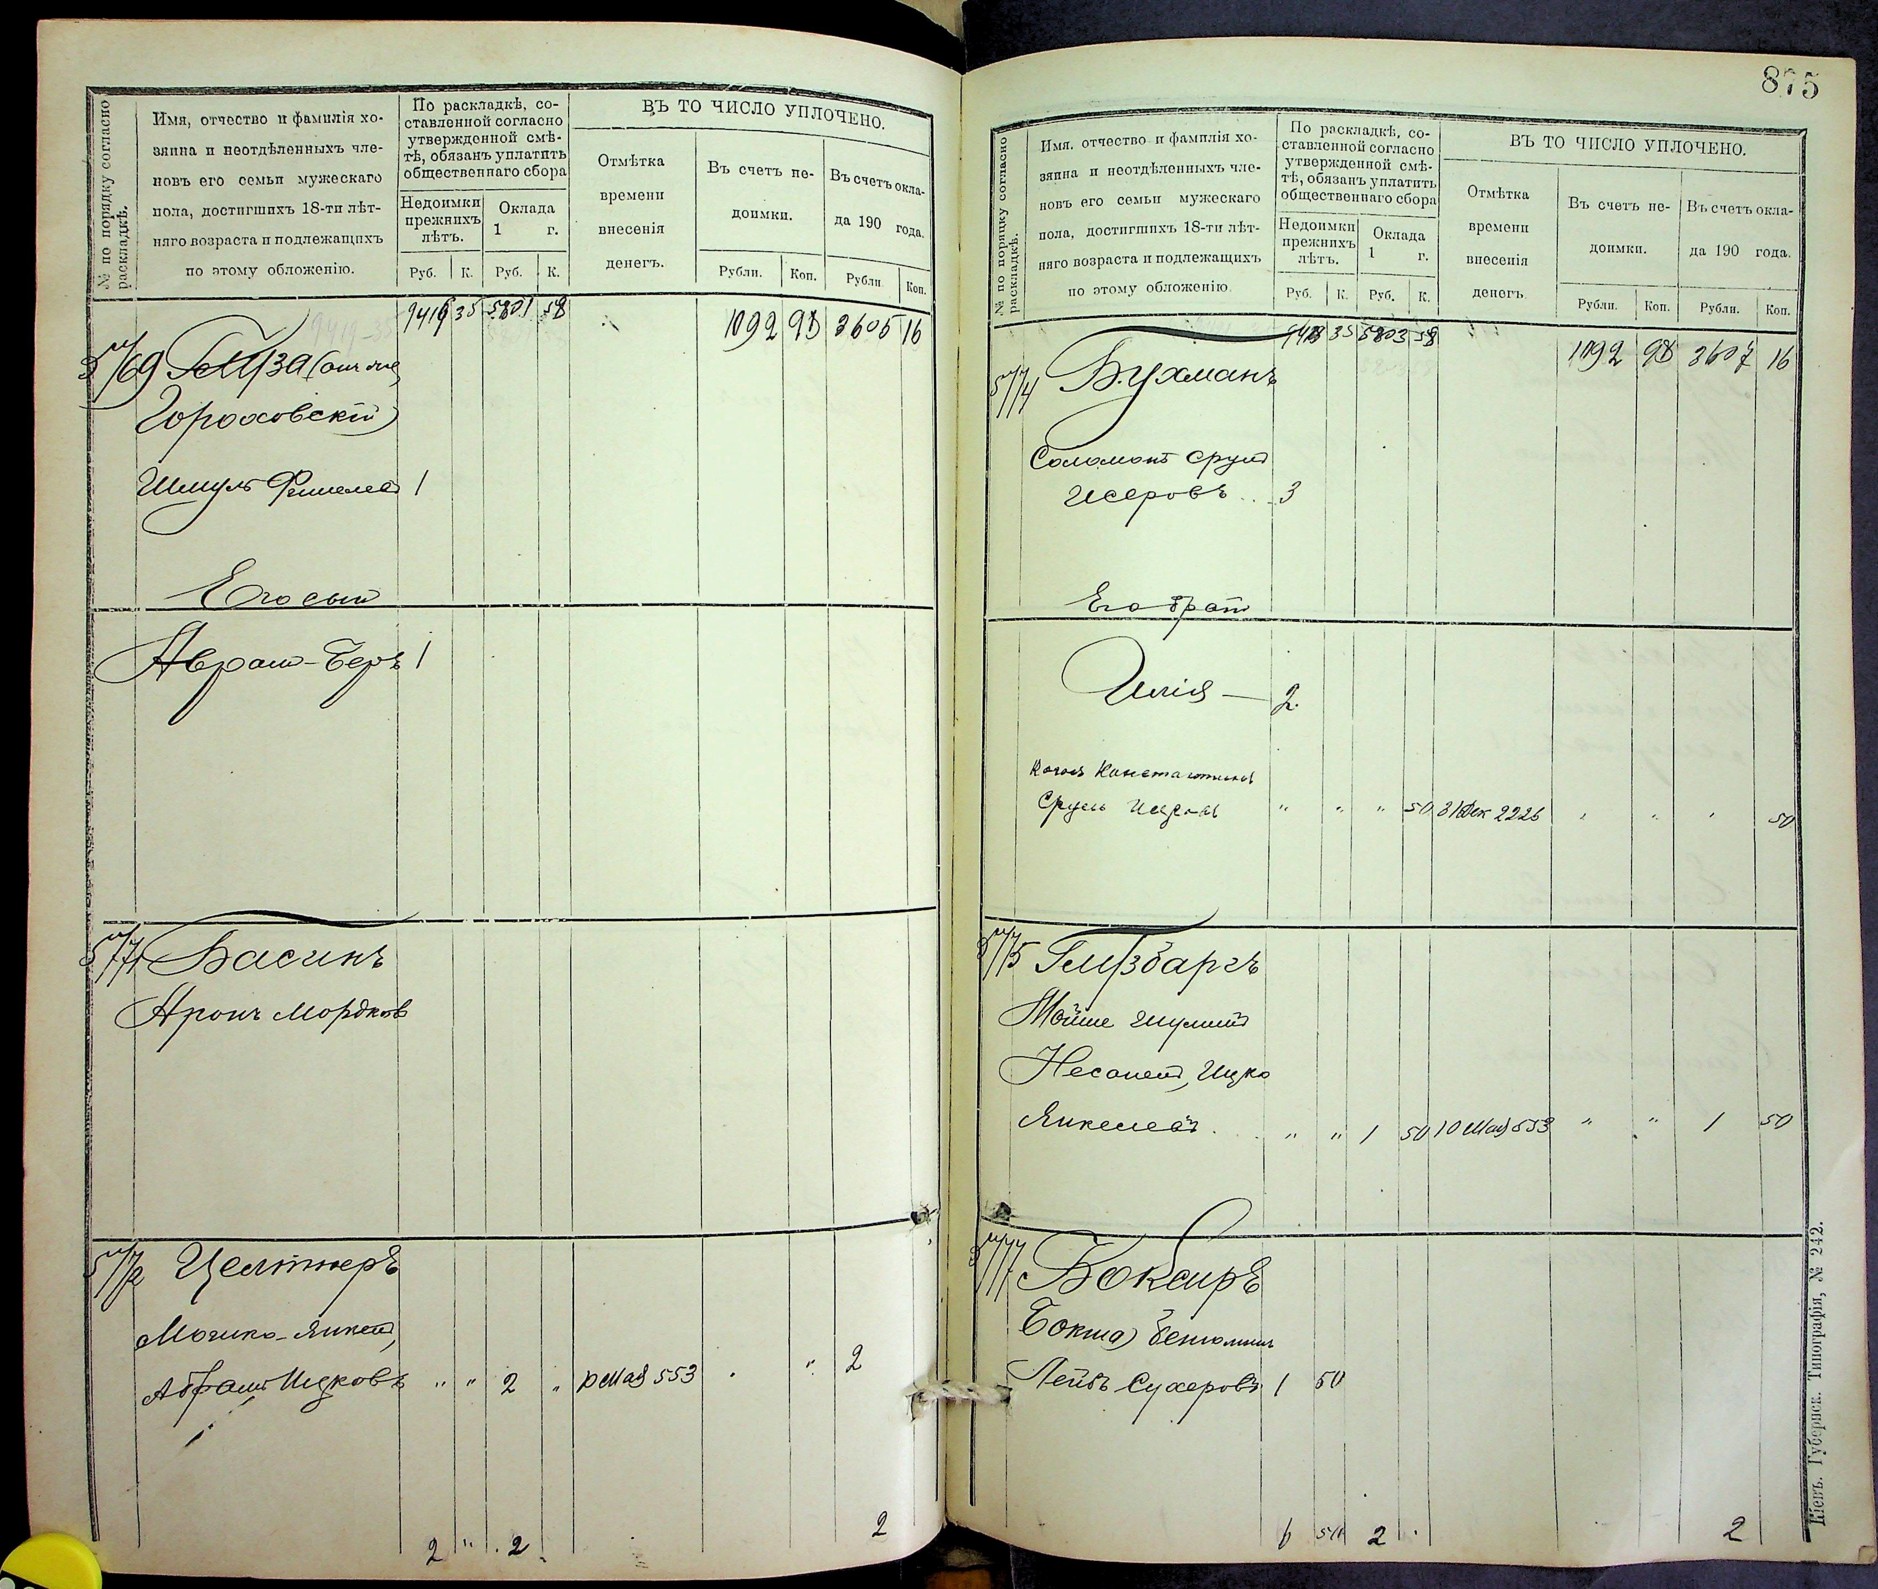 № по порядку согласно
раскладкѣ.
Имя, отчество и фамилія хо-
зяина и неотдѣленныхъ чле-
новъ его семьи мужескаго
пола, достигшихъ 18-ти лѣт-
няго возраста и подлежащихъ
по этому обложенію.
По раскладкѣ, со-
ставленной согласно
утвержденной смѣ-
тѣ, обязанъ уплатить
общественнаго сбора
Недоимки
прежнихъ
лѣтъ.
Оклада
1 г.
Руб. К. Руб. К.
ВЪ ТО ЧИСЛО УПЛОЧЕНО.
Отмѣтка
времени
внесенія
денегъ.
Въ счетъ не-
доимки.
Въ счетъ окла-
да 190 года.
Рубли. Коп. Рубли Коп.
9416 35 5801 58 1092 93 3605 16
Гороховскій)
Шмуль 1
Его сын
Аврам-Беръ 1
Басинъ
Аронъ Мордков
Целтнеръ
Мошко-Янкель,
Абрам Ицковъ " " 2 " Мая 553 " " 2
2 " 2 2
875
№ по порядку согласно
раскладкѣ.
Имя. отчество и фамилія хо-
зяина и неотдѣленныхъ чле-
новъ его семьи мужескаго
пола, достигшихъ 18-ти лѣт-
няго возраста и подлежащихъ
по этому обложенію
По раскладкѣ, со-
ставленной согласно
утвержденной смѣ-
тѣ, обязанъ уплатить
общественнаго сбора
Недоимки
прежнихъ
лѣтъ.
Оклада
1 г.
Руб. К. Руб. К.
ВЪ ТО ЧИСЛО УПЛОЧЕНО.
Отмѣтка
времени
внесенія
денегъ
Въ счетъ не-
доимки.
Въ счетъ окла-
да 190 года.
Рубли. Коп. Рубли. Коп.
9418 35 5803 58 1092 93 3607 16
Бухманъ
Соломонъ Сруль
Исеровъ 3
Его брат
Илія — 2.
Сруль " " " 50 31 Дек 2226 " " " 50
Мойше
Ицко
Янкелевъ " " 1 50 10 Мая 553 " " 1 50
Боксиръ
Лейбъ Сухеровъ 1 50
6 50 2 2
Кіевъ. Губернск. Типографія, № 242.